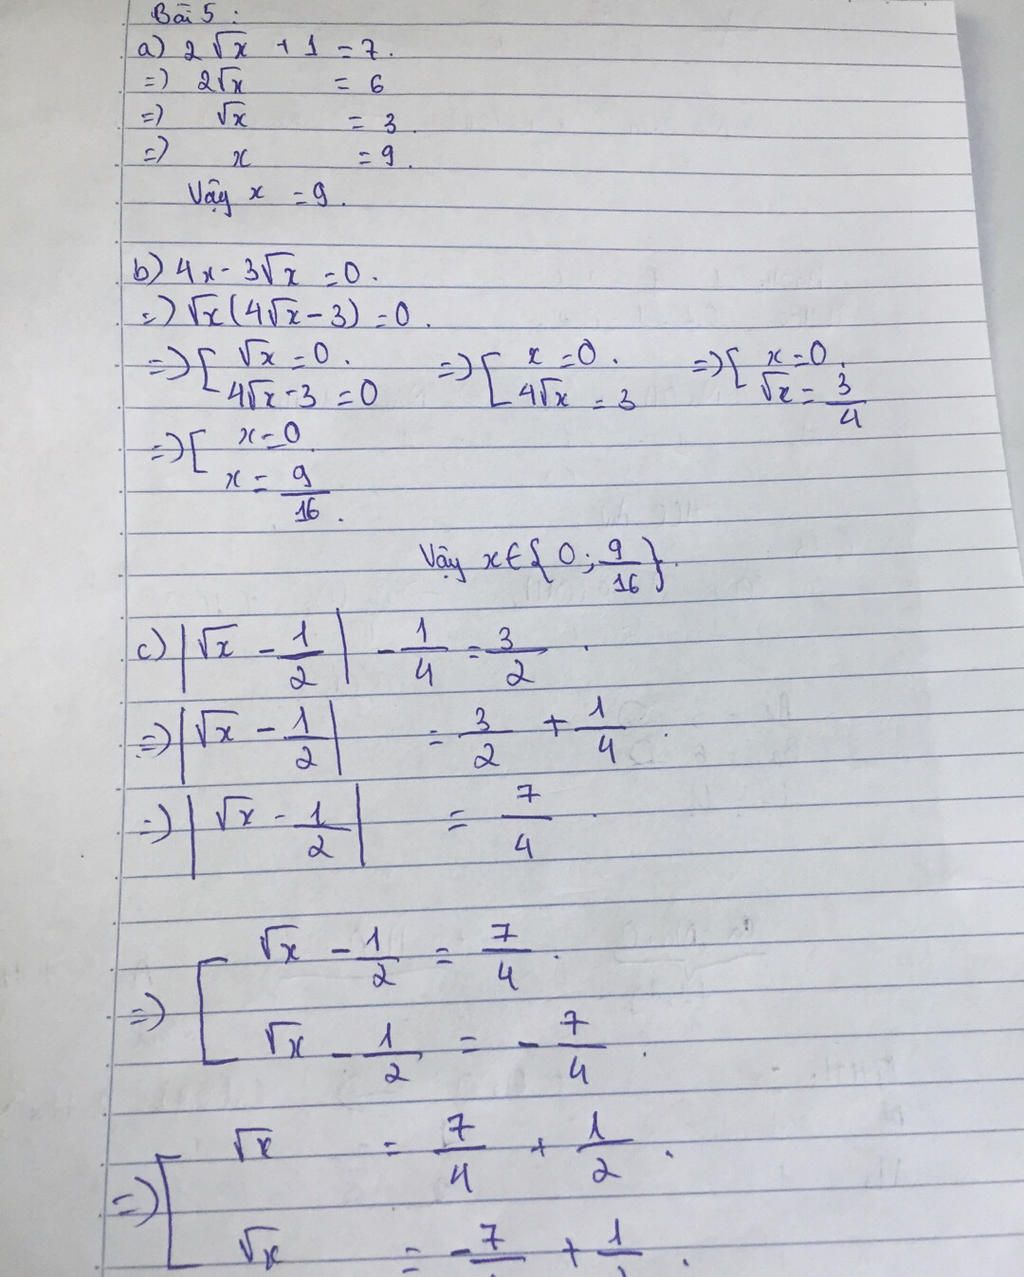 Bài 5 :
a) 2√x + 1 = 7.
=) 2√x = 6
=) √x = 3.
=) x = 9.
Vậy x = 9.
b) 4x - 3√x = 0.
=) √x (4√x - 3) = 0.
=) [ √x = 0. =) [ x = 0. =) [ x = 0.
4√x - 3 = 0 4√x = 3 √x = 3/4
=) [ x = 0
x = 9/16.
Vậy x ∈ {0; 9/16}.
c) |√x - 1/2| - 1/4 = 3/2.
=) |√x - 1/2| = 3/2 + 1/4.
=) |√x - 1/2| = 7/4.
=) [ √x - 1/2 = 7/4.
√x - 1/2 = - 7/4.
=) [ √x = 7/4 + 1/2.
√x = - 7 + 1 .